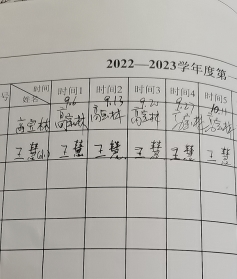 2022—2023学年度第
号 时间 姓名 时间1 时间2 时间3 时间4 时间5
9.6 9.13 9.20 9.27
高宝林 高宝林 高宝林 高宝林 高宝林 高宝林
王慧 王慧 王慧 王慧 王慧 王慧